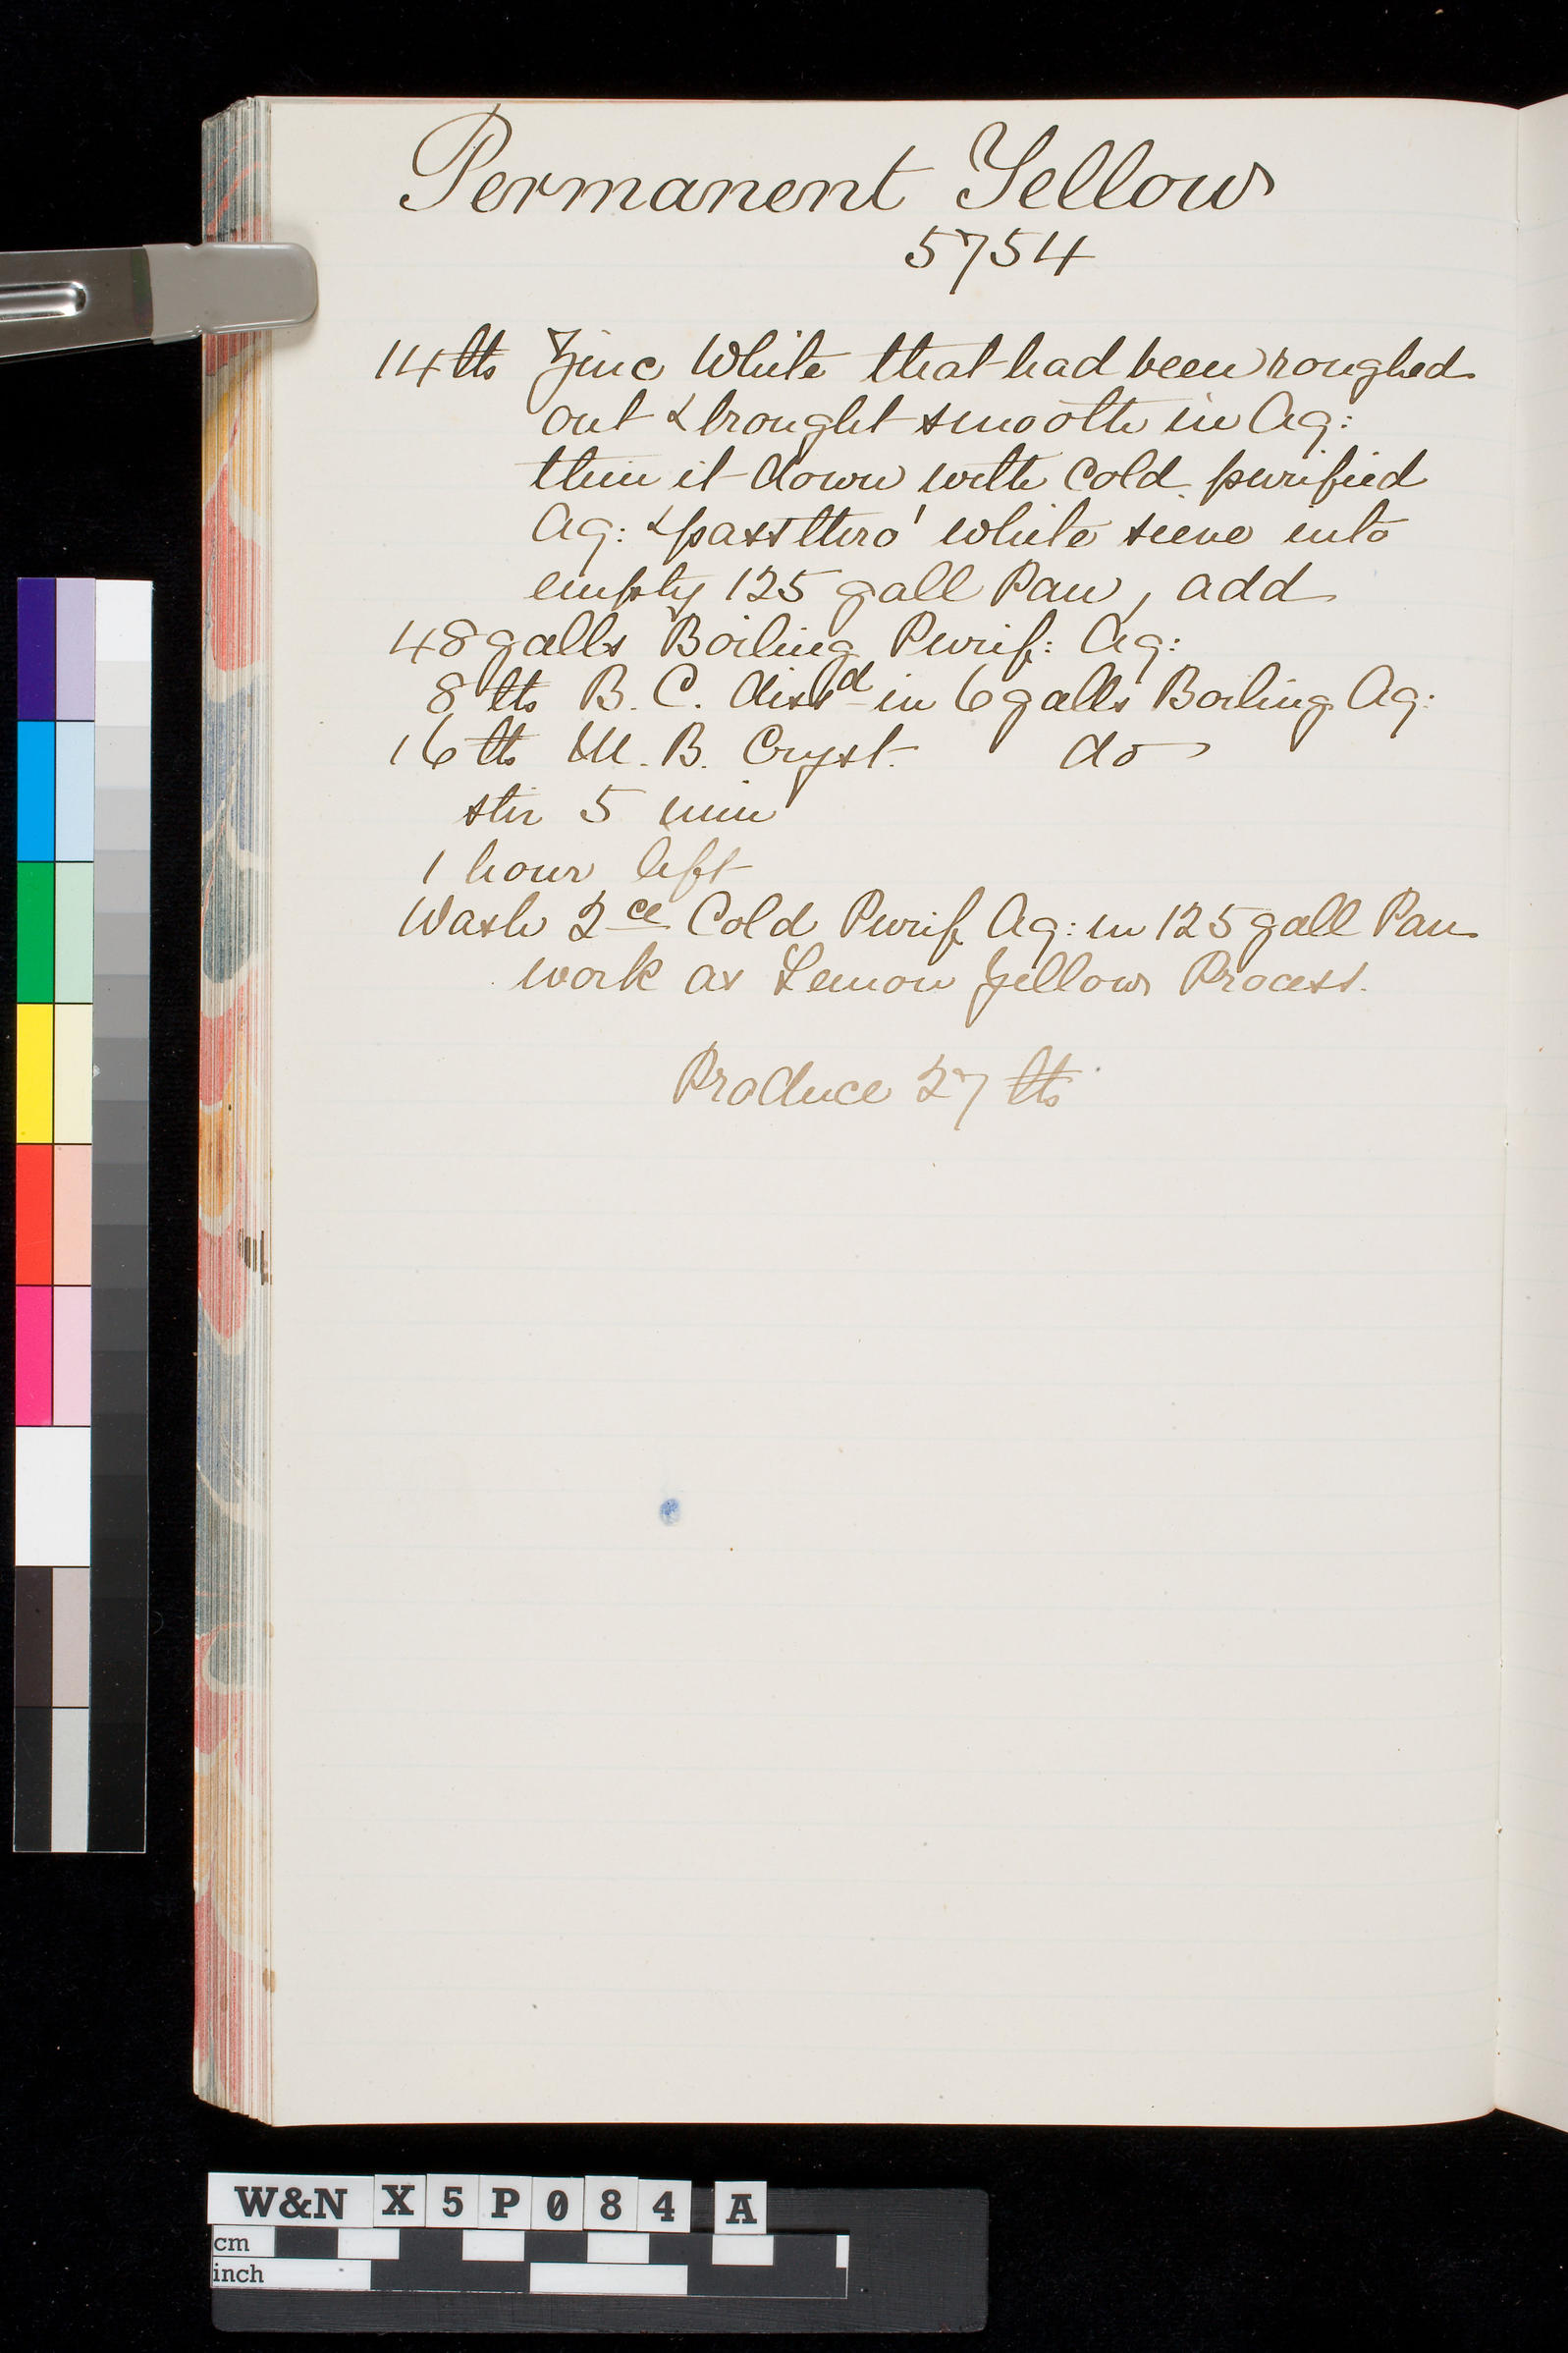 Permanent Yellow
5754
14 lbs Zinc White that had been roughed
out & brought smooth in Aq:
thin it down with cold purified
Aq: & pass thro' white sieve into
empty 125 gall Pan, add
48 galls Boiling Purif: Aq:
8 lbs B. C. dissd in 6 galls Boiling Aq:
16 lbs M. B. Cryst. do
stir 5 min
1 hour left
Wash 2ce Cold Purif Aq: in 125 gall Pan
work as Lemon Yellow Process.
Produce 27 lbs
W&N X5P084 A
cm
inch